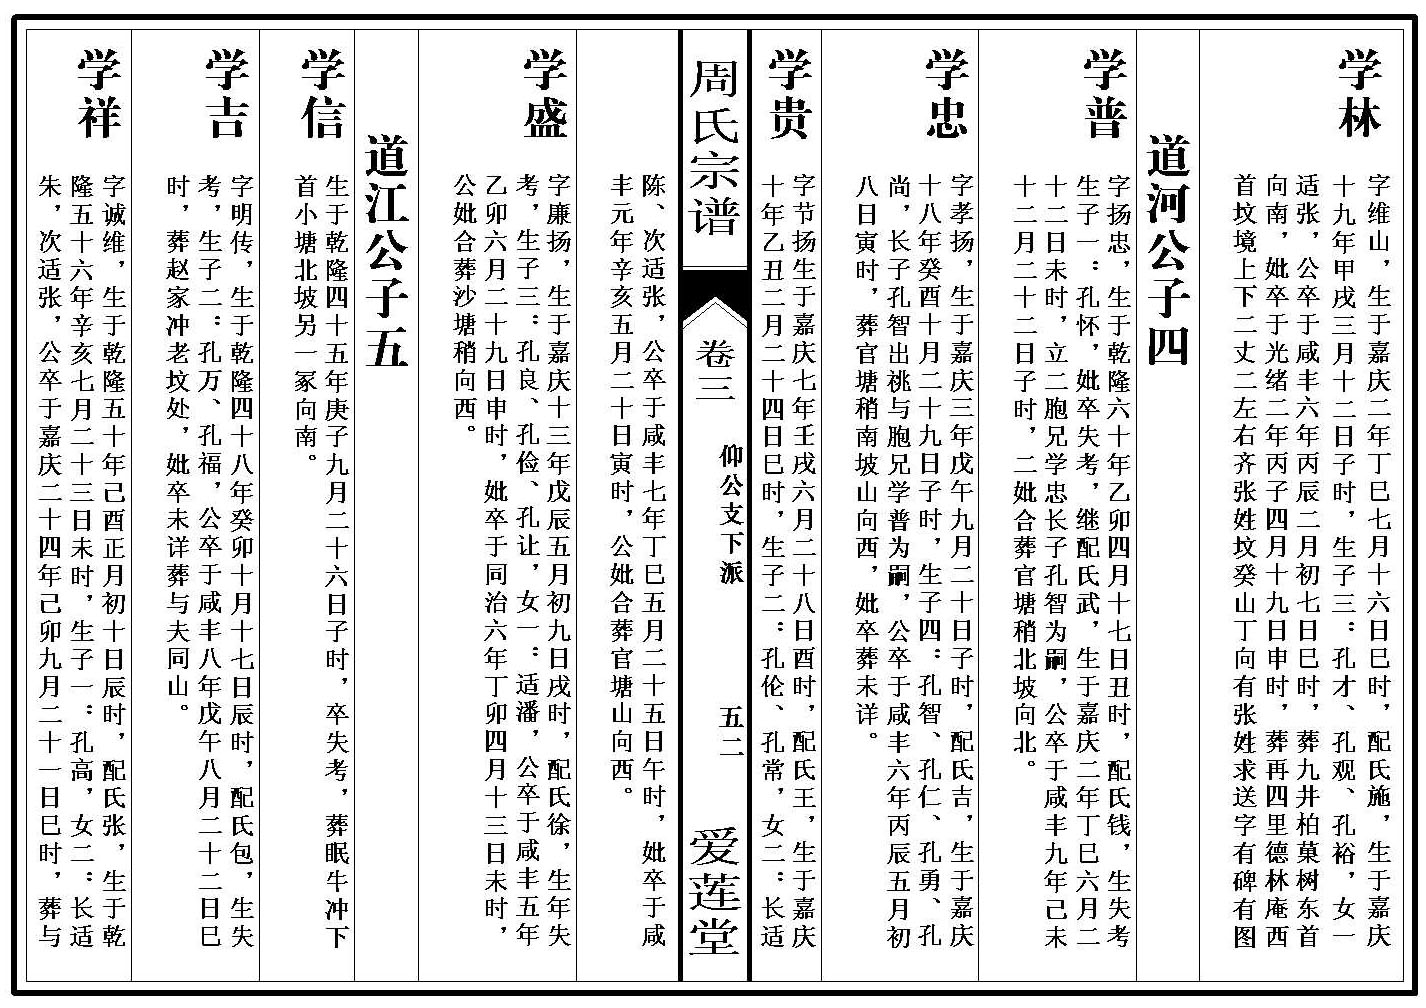 学林
字维山，生于嘉庆二年丁巳七月十六日巳时，配氏施，生于嘉庆
十九年甲戌三月十二日子时，生子三：孔才、孔观、孔裕，女一
适张，公卒于咸丰六年丙辰二月初七日巳时，葬九井柏菓树东首
向南，妣卒于光绪二年丙子四月十九日申时，葬再四里德林庵西
首坟境上下二丈二左右齐张姓坟癸山丁向有张姓求送字有碑有图
道河公子四
学普
字扬忠，生于乾隆六十年乙卯四月十七日丑时，配氏钱，生失考
生子一：孔怀，妣卒失考，继配氏武，生于嘉庆二年丁巳六月二
十二日未时，立二胞兄学忠长子孔智为嗣，公卒于咸丰九年己未
十二月二十二日子时，二妣合葬官塘稍北坡向北。
学忠
字孝扬，生于嘉庆三年戊午九月二十日子时，配氏吉，生于嘉庆
十八年癸酉十月二十九日子时，生子四：孔智、孔仁、孔勇、孔
尚，长子孔智出祧与胞兄学普为嗣，公卒于咸丰六年丙辰五月初
八日寅时，葬官塘稍南坡山向西，妣卒葬未详。
学贵
字节扬生于嘉庆七年壬戌六月二十八日酉时，配氏王，生于嘉庆
十年乙丑二月二十四日巳时，生子二：孔伦、孔常，女二：长适
周氏宗谱
卷三
仰公支下派
五二
爱莲堂
陈、次适张，公卒于咸丰七年丁巳五月二十五日午时，妣卒于咸
丰元年辛亥五月二十日寅时，公妣合葬官塘山向西。
学盛
字廉扬，生于嘉庆十三年戊辰五月初九日戌时，配氏徐，生年失
考，生子三：孔良、孔俭、孔让，女一：适潘，公卒于咸丰五年
乙卯六月二十九日申时，妣卒于同治六年丁卯四月十三日未时，
公妣合葬沙塘稍向西。
道江公子五
学信
生于乾隆四十五年庚子九月二十六日子时，卒失考，葬眠牛冲下
首小塘北坡另一冢向南。
学吉
字明传，生于乾隆四十八年癸卯十月十七日辰时，配氏包，生失
考，生子二：孔万、孔福，公卒于咸丰八年戊午八月二十二日巳
时，葬赵家冲老坟处，妣卒未详葬与夫同山。
学祥
字诚维，生于乾隆五十年己酉正月初十日辰时，配氏张，生于乾
隆五十六年辛亥七月二十三日未时，生子一：孔高，女二：长适
朱，次适张，公卒于嘉庆二十四年己卯九月二十一日巳时，葬与